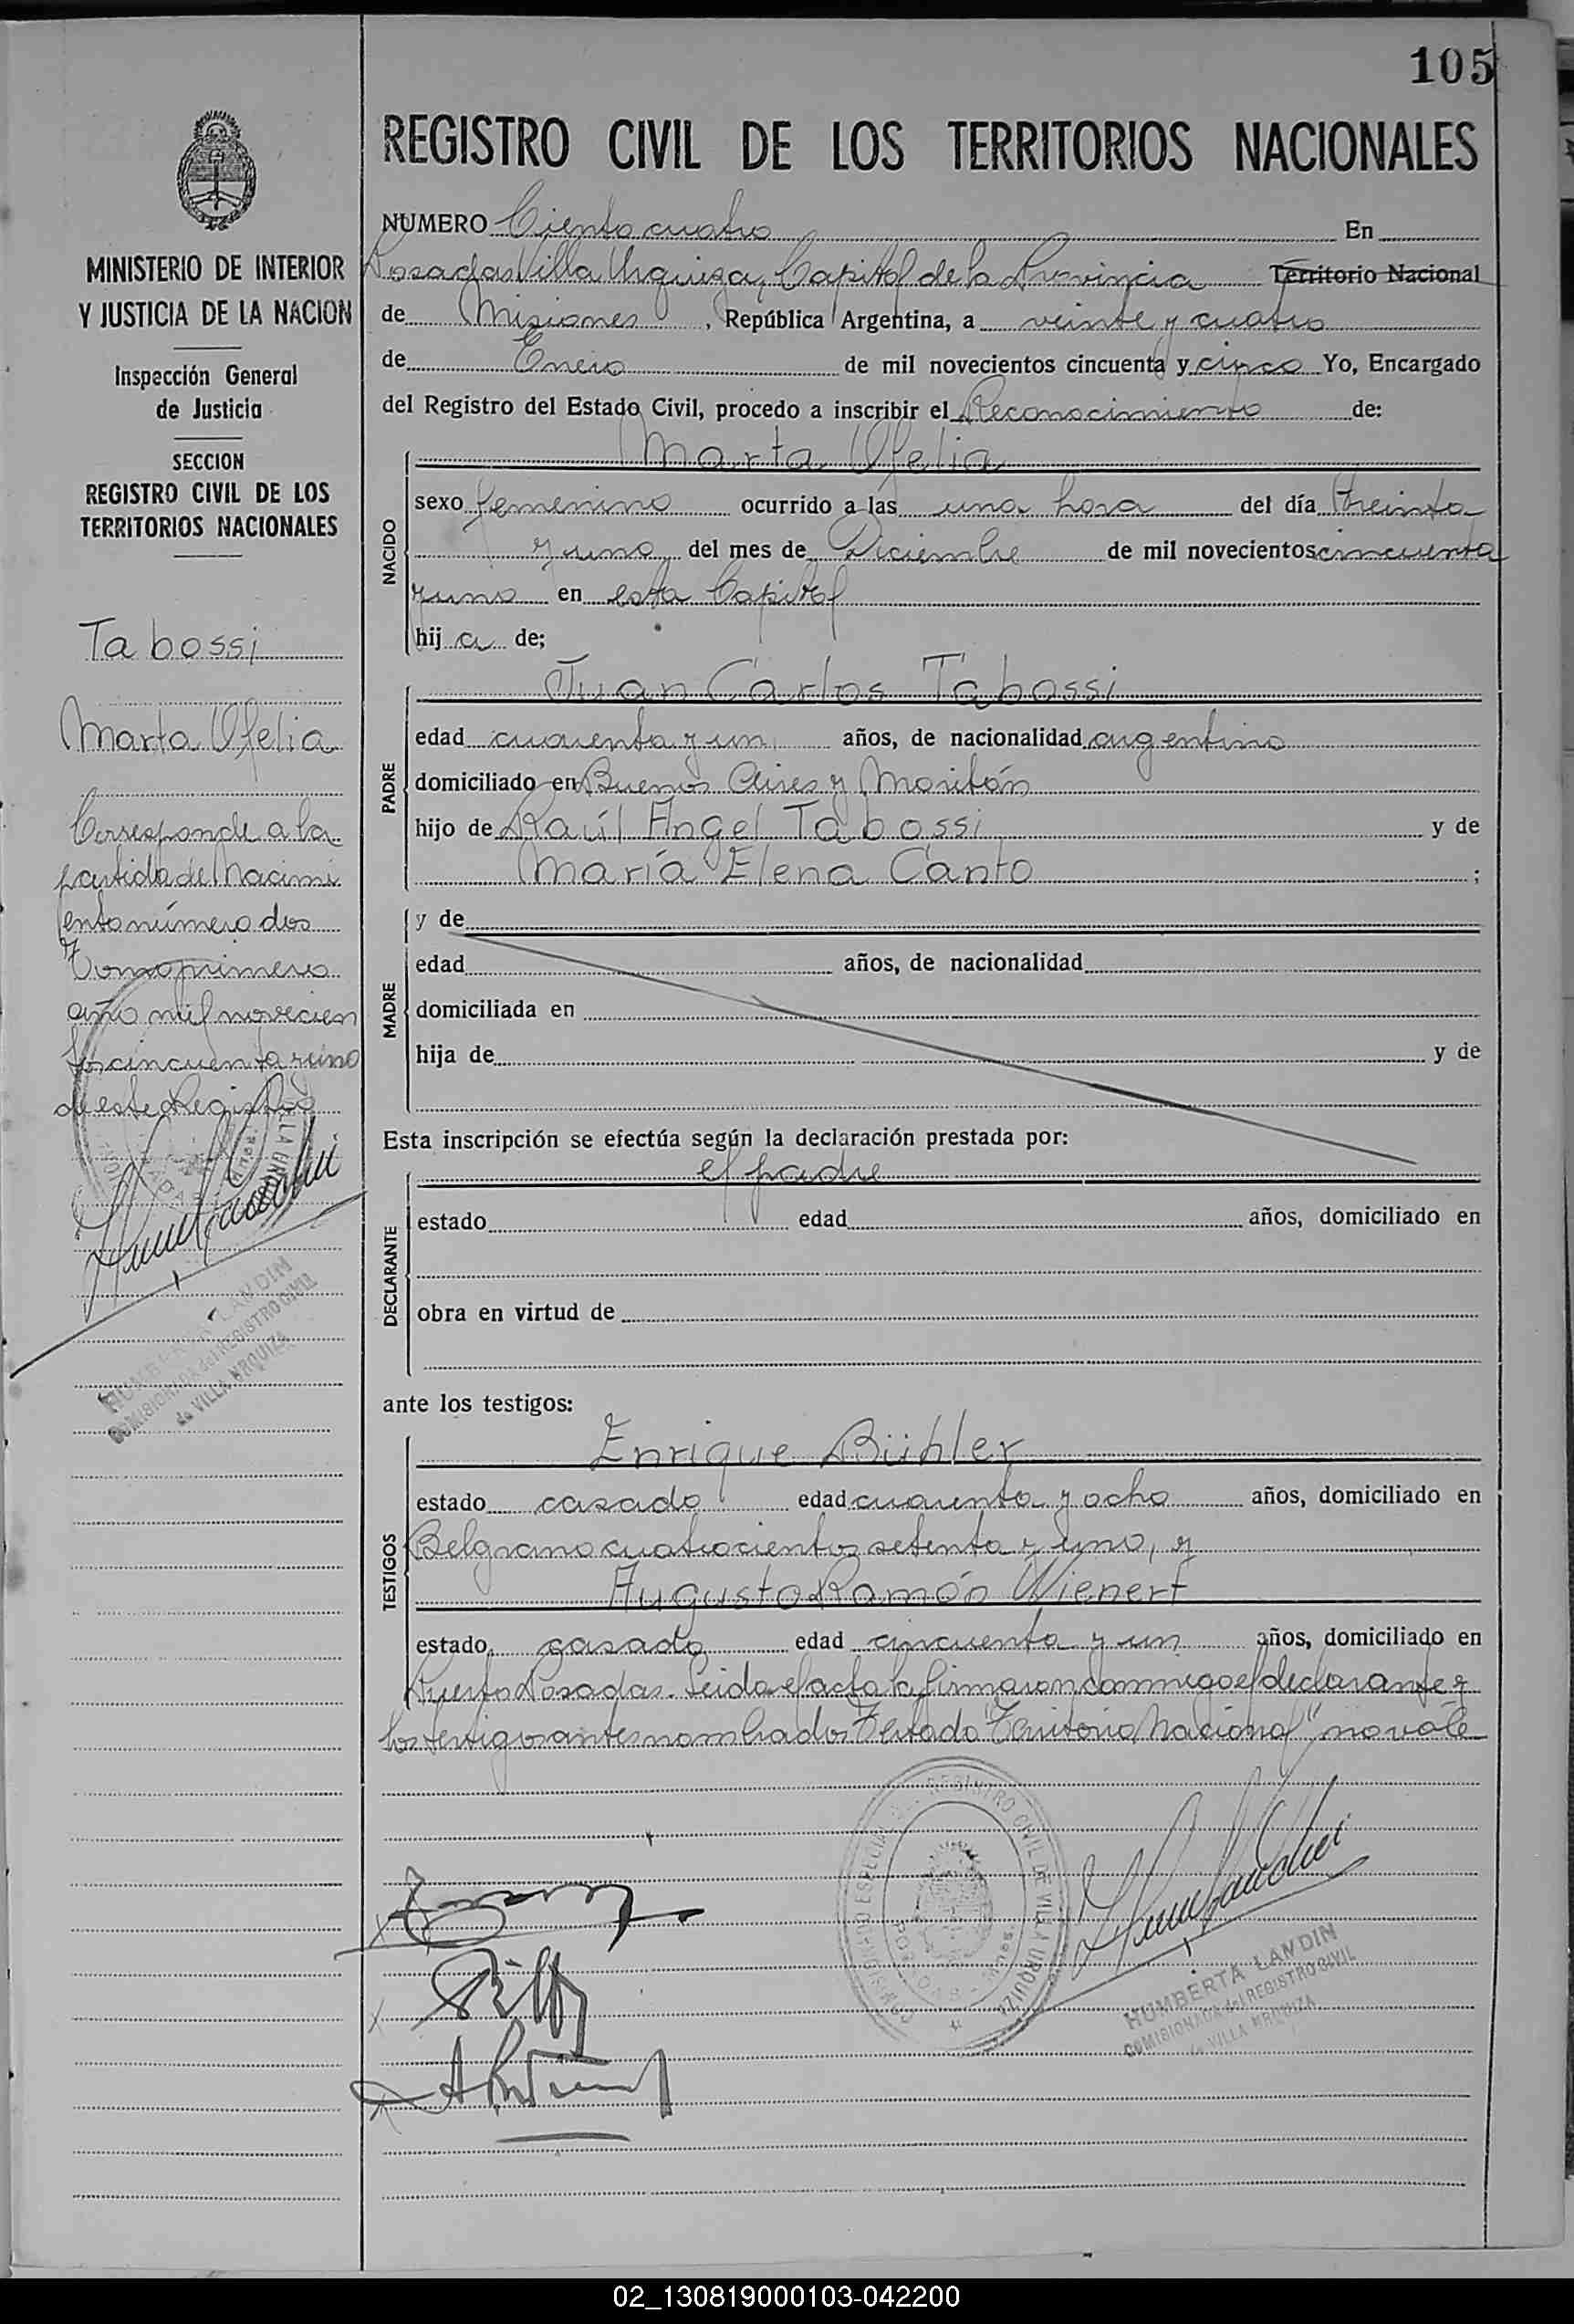 105
REGISTRO CIVIL DE LOS TERRITORIOS NACIONALES
MINISTERIO DE INTERIOR
Y JUSTICIA DE LA NACION
Inspección General
de Justicia
SECCION
REGISTRO CIVIL DE LOS
TERRITORIOS NACIONALES
Tabossi
Marta Ofelia
Corresponde a la
partida de Nacimi
ento número dos
Tomo primero
año mil novecien
tos cincuenta y uno
de este Registro
HUMBERTA LANDIN
COMISIONADA del REGISTRO CIVIL
de VILLA URQUIZA
NUMERO Ciento cuatro En
Posadas Villa Urquiza, Capital de la Provincia Territorio Nacional
de Misiones, República Argentina, a veinte y cuatro
de Enero de mil novecientos cincuenta y cinco Yo, Encargado
del Registro del Estado Civil, procedo a inscribir el Reconocimiento de:
NACIDO
Marta Ofelia
sexo femenino ocurrido a las una hora del día treinta
y uno del mes de Diciembre de mil novecientos cincuenta
y uno en esta Capital
hija de;
PADRE
Juan Carlos Tabossi
edad cuarenta y un años, de nacionalidad argentino
domiciliado en Buenos Aires y
hijo de Raúl Angel Tabossi y de
María Elena Canto ;
MADRE
y de
edad años, de nacionalidad
domiciliada en
hija de y de
Esta inscripción se efectúa según la declaración prestada por:
DECLARANTE
el padre
estado edad años, domiciliado en
obra en virtud de
ante los testigos:
TESTIGOS
Enrique Bühler
estado casado edad cuarenta y ocho años, domiciliado en
Belgrano cuatrocientos setenta y uno, y
Augusto Ramón Wienert
estado casado edad cincuenta y un años, domiciliado en
Puerto Posadas. Leida el acta la firmaron conmigo el declarante y
los testigos antes nombrados Testado "Territorio Nacional" no vale
REGISTRO CIVIL DE VILLA URQUIZA
HUMBERTA LANDIN
COMISIONADA del REGISTRO CIVIL
de VILLA URQUIZA
02_130819000103-042200